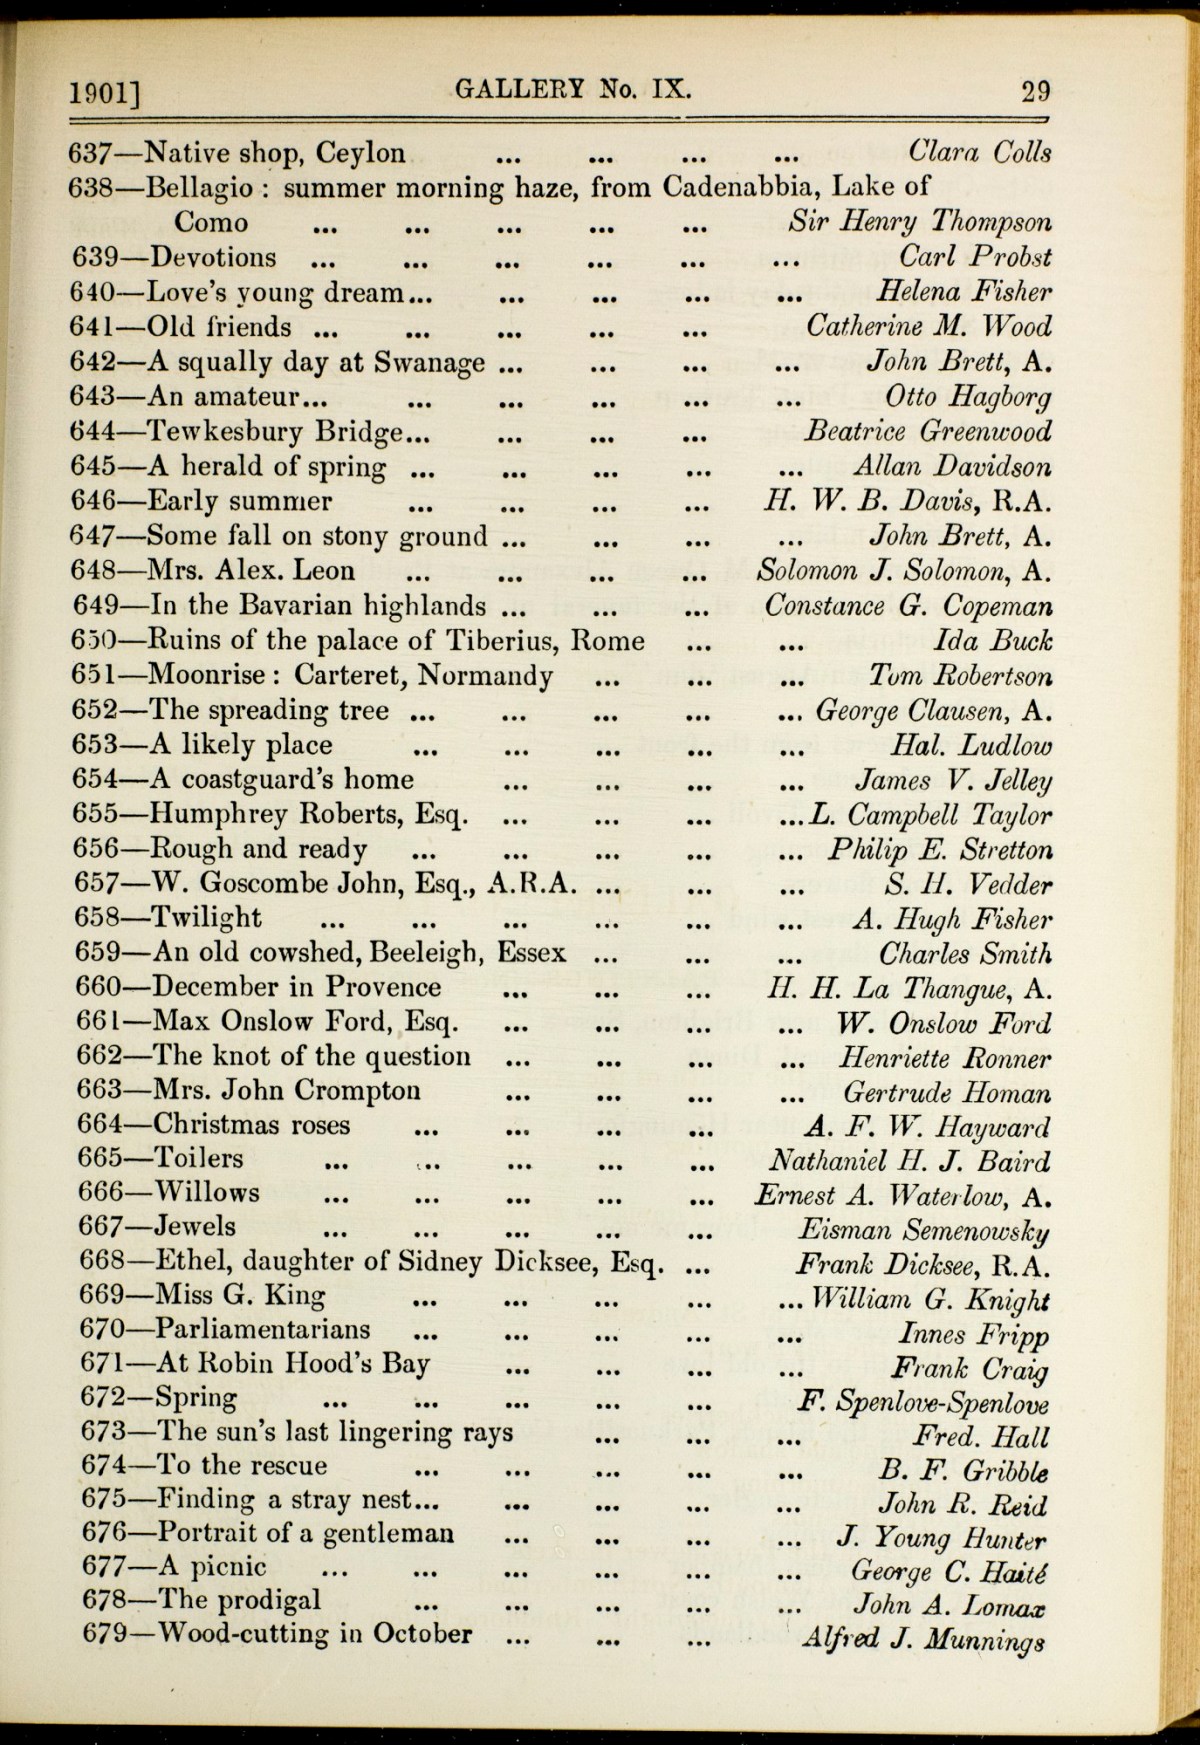 1901] GALLERY No. IX. 29
637—Native shop, Ceylon ... ... ... ... Clara Colls
638—Bellagio : summer morning haze, from Cadenabbia, Lake of
Como ... ... ... ... ... Sir Henry Thompson
639—Devotions ... ... ... ... ... ... Carl Probst
640—Love's young dream... ... ... ... ... Helena Fisher
641—Old friends ... ... ... ... ... Catherine M. Wood
642—A squally day at Swanage ... ... ... ... John Brett, A.
643—An amateur... ... ... ... ... ... Otto Hagborg
644—Tewkesbury Bridge... ... ... ... Beatrice Greenwood
645—A herald of spring ... ... ... ... ... Allan Davidson
646—Early summer ... ... ... ... H. W. B. Davis, R.A.
647—Some fall on stony ground ... ... ... ... John Brett, A.
648—Mrs. Alex. Leon ... ... ... ... Solomon J. Solomon, A.
649—In the Bavarian highlands ... ... ... Constance G. Copeman
650—Ruins of the palace of Tiberius, Rome ... ... Ida Buck
651—Moonrise : Carteret, Normandy ... ... ... Tom Robertson
652—The spreading tree ... ... ... ... ... George Clausen, A.
653—A likely place ... ... ... ... ... Hal. Ludlow
654—A coastguard's home ... ... ... ... James V. Jelley
655—Humphrey Roberts, Esq. ... ... ... ... L. Campbell Taylor
656—Rough and ready ... ... ... ... ... Philip E. Stretton
657—W. Goscombe John, Esq., A.R.A. ... ... ... S. H. Vedder
658—Twilight ... ... ... ... ... ... A. Hugh Fisher
659—An old cowshed, Beeleigh, Essex ... ... ... Charles Smith
660—December in Provence ... ... ... H. H. La Thangue, A.
661—Max Onslow Ford, Esq. ... ... ... ... W. Onslow Ford
662—The knot of the question ... ... ... ... Henriette Ronner
663—Mrs. John Crompton ... ... ... ... Gertrude Homan
664—Christmas roses ... ... ... ... A. F. W. Hayward
665—Toilers ... ... ... ... ... Nathaniel H. J. Baird
666—Willows ... ... ... ... ... Ernest A. Waterlow, A.
667—Jewels ... ... ... ... ... Eisman Semenowsky
668—Ethel, daughter of Sidney Dicksee, Esq. ... Frank Dicksee, R.A.
669—Miss G. King ... ... ... ... ... William G. Knight
670—Parliamentarians ... ... ... ... ... Innes Fripp
671—At Robin Hood's Bay ... ... ... ... Frank Craig
672—Spring ... ... ... ... ... F. Spenlove-Spenlove
673—The sun's last lingering rays ... ... ... Fred. Hall
674—To the rescue ... ... ... ... ... B. F. Gribble
675—Finding a stray nest... ... ... ... ... John R. Reid
676—Portrait of a gentleman ... ... ... ... J. Young Hunter
677—A picnic ... ... ... ... ... ... George C. Haité
678—The prodigal ... ... ... ... ... John A. Lomax
679—Wood-cutting in October ... ... ... Alfred J. Munnings